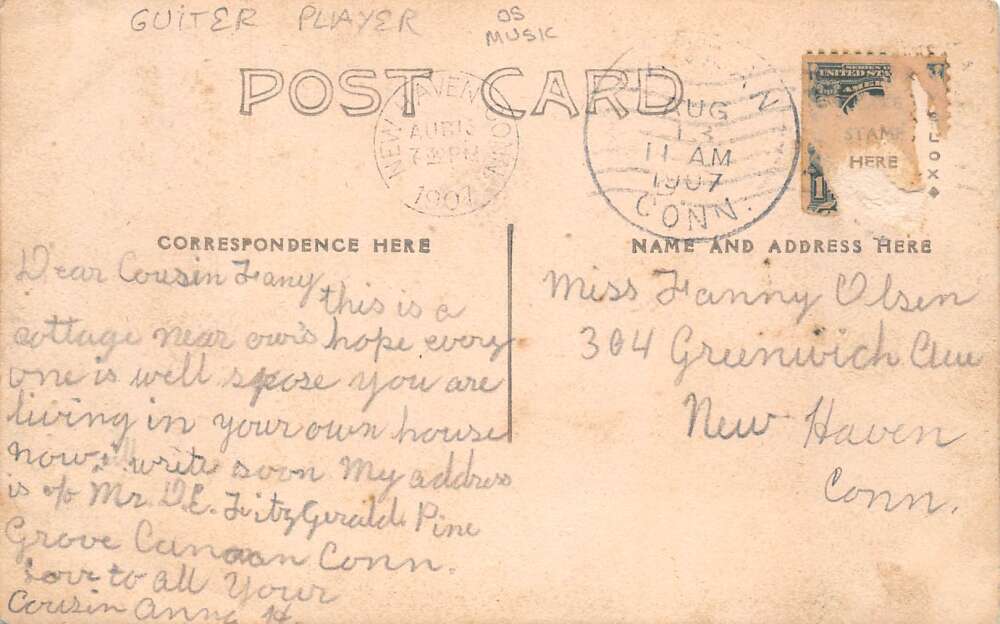 GUITER PLAYER
OS
MUSIC
POST CARD
NEW HAVEN CONN.
AUG 13
7 PM
1907
AUG
13
11 AM
1907
CONN.
SERIES
UNITED STA
AMER
1
STAMP
HERE
CORRESPONDENCE HERE
NAME AND ADDRESS HERE
Dear Cousin Fany
this is a
cottage near owrs hope every
one is well spose you are
living in your own house
now. write soon My address
is c/o Mr. D.E. FitzGerald Pine
Grove Canaan Conn.
Love to all Your
Cousin Anna H.
Miss Fanny Olsen
304 Greenwich Ave
New Haven
Conn.